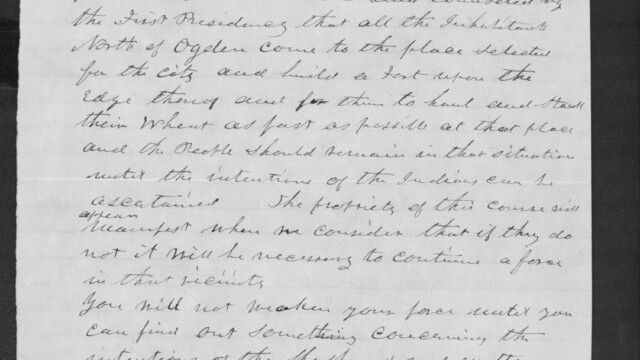 the First Presidency that all the Inhabitants
North of Ogden come to the place selected
for the city and build a Fort upon the
Edge thereof and for them to haul and Stack
their Wheat as fast as possible at that place
and the People should remain in that situation
until the intentions of the Indians can be
ascertained The propriety of this course will
appear
manifest when we consider that if they do
not it will be necessary to continue a force
in that vicinity
You will not weaken your force until you
can find out something concerning the
intentions of the